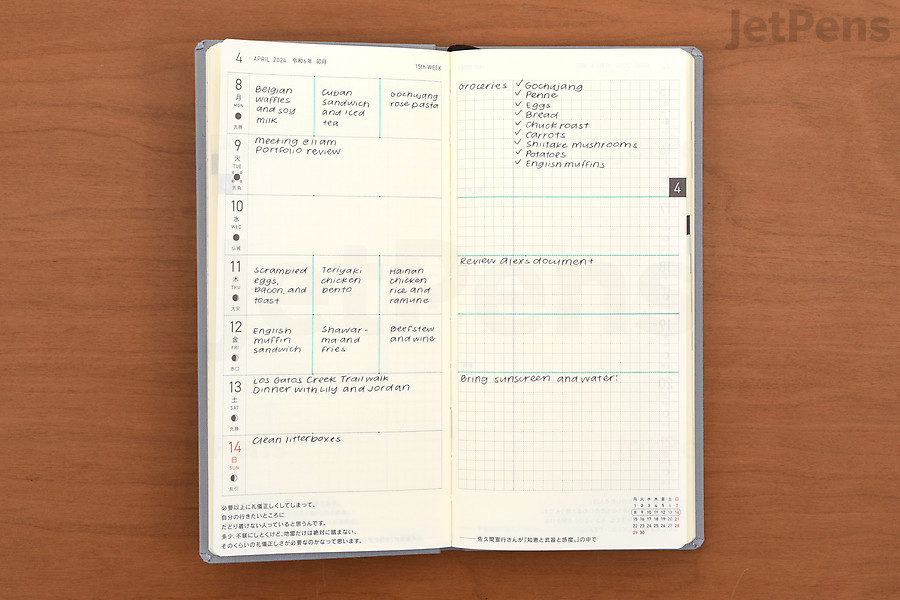 JetPens
4 APRIL 2024 令和6年 卯月
15th WEEK
8
月
MON
先勝
Belgian
waffles
and soy
milk
Cuban
sandwich
and iced
tea
Gochujang
rose pasta
9
火
TUE
先負
meeting @ 11am
Portfolio review
10
水
WED
仏滅
11
木
THU
大安
Scrambled
eggs,
bacon, and
toast
Teriyaki
chicken
bento
Hainan
chicken
rice and
ramune
12
金
FRI
赤口
English
muffin
sandwich
Shawar-
ma and
fries
Beef stew
and wine
13
土
SAT
先勝
Los Gatos Creek Trail walk
Dinner with Lily and Jordan
14
日
SUN
友引
Clean litterboxes
必要以上に礼儀正しくしてしまって、
自分の行きたいところに
たどり着けない人っていると思うんです。
多少、不躾にしとくけど、地雷だけは絶対に踏まない、
そのくらいの礼儀正しさが必要なのかなって思います。
Groceries
✓ Gochujang
✓ Penne
✓ Eggs
✓ Bread
✓ Chuck roast
✓ Carrots
✓ Shiitake mushrooms
✓ Potatoes
✓ English muffins
4
Review Alex's document
Bring sunscreen and water!
月 火 水 木 金 土 日
1 2 3 4 5 6 7
8 9 10 11 12 13 14
15 16 17 18 19 20 21
22 23 24 25 26 27 28
29 30
——佐久間宣行さんが『知恵と武器と感度。』の中で